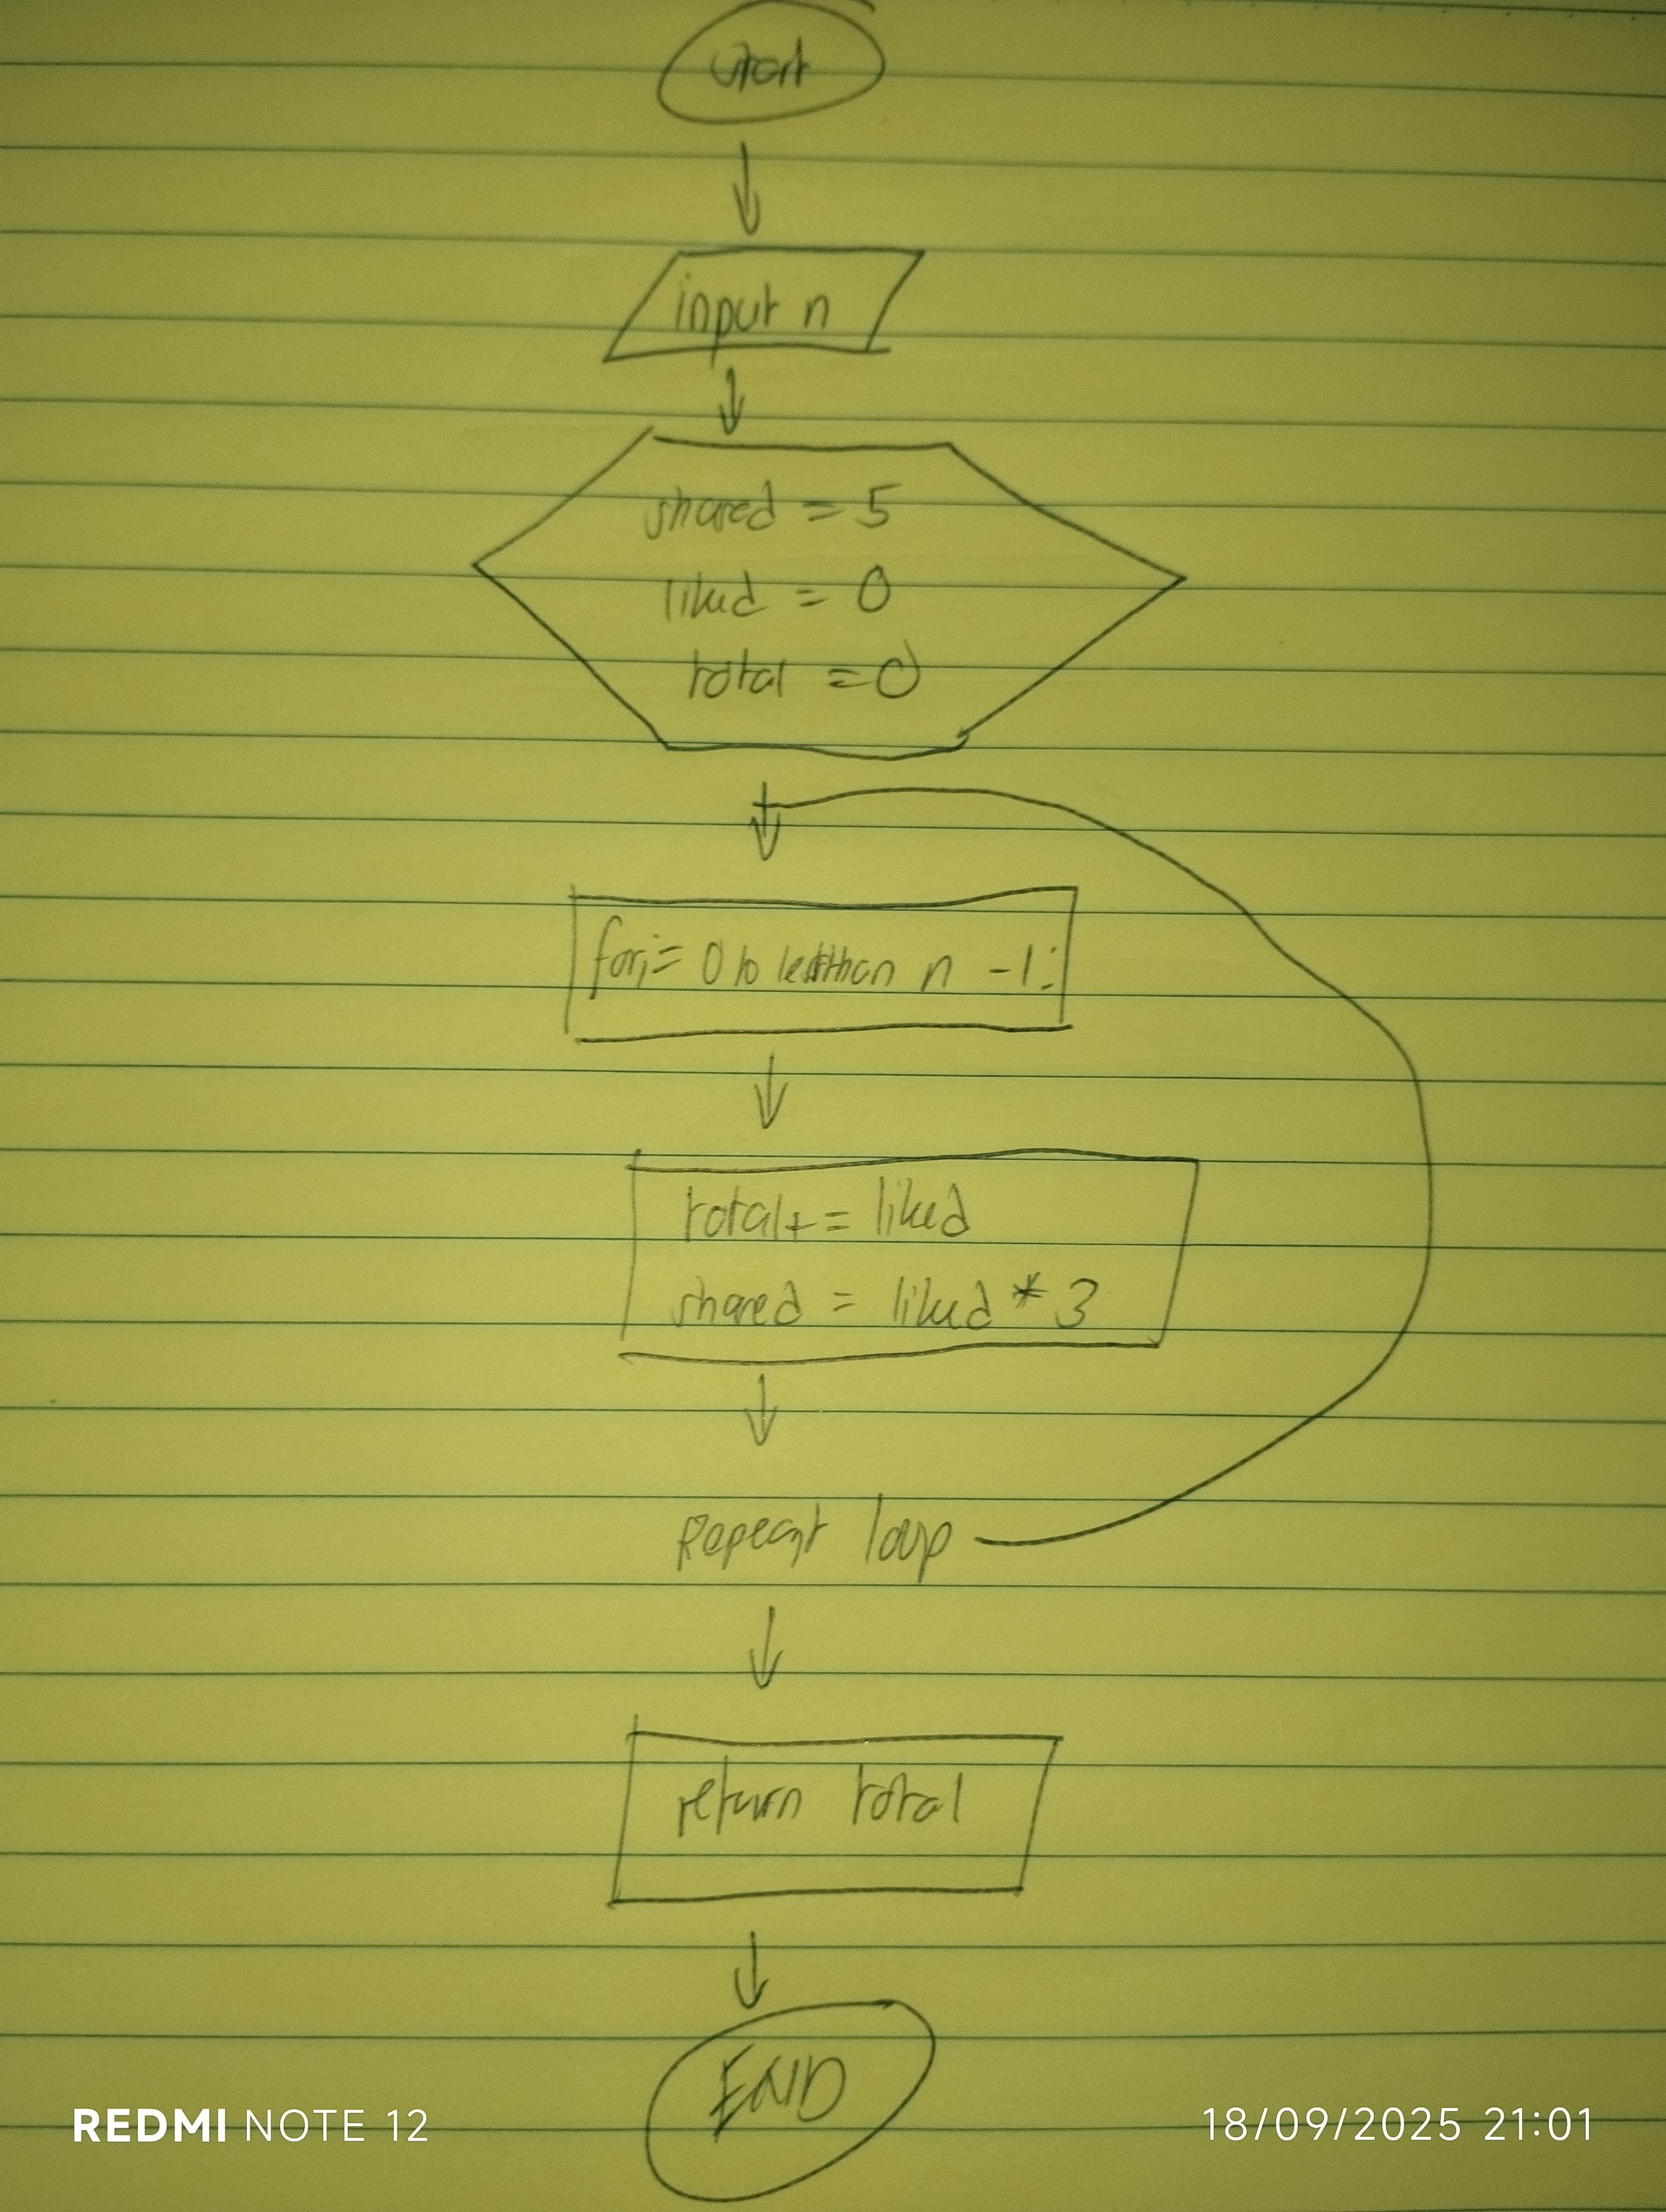 start
input n
shared = 5
liked = 0
total = 0
for i = 0 to less than n - 1:
total += liked
shared = liked * 3
Repeat loop
return total
END
REDMI NOTE 12
18/09/2025 21:01